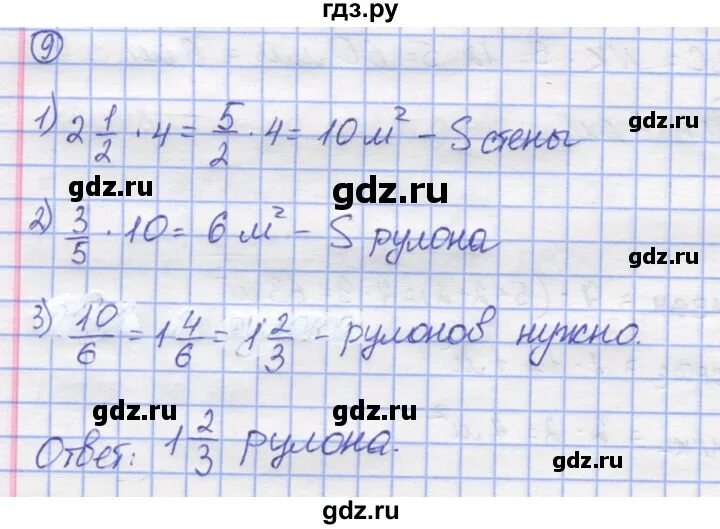 гдз.ру
9
1) 2 1/2 · 4 = 5/2 · 4 = 10 м² – S стены
gdz.ru
gdz.ru
gdz.ru
2) 3/5 · 10 = 6 м² – S рулона
gdz.ru
3) 10/6 = 1 4/6 = 1 2/3 – рулонов нужно.
gdz.ru
gdz.ru
Ответ: 1 2/3 рулона.
gdz.ru
gdz.ru